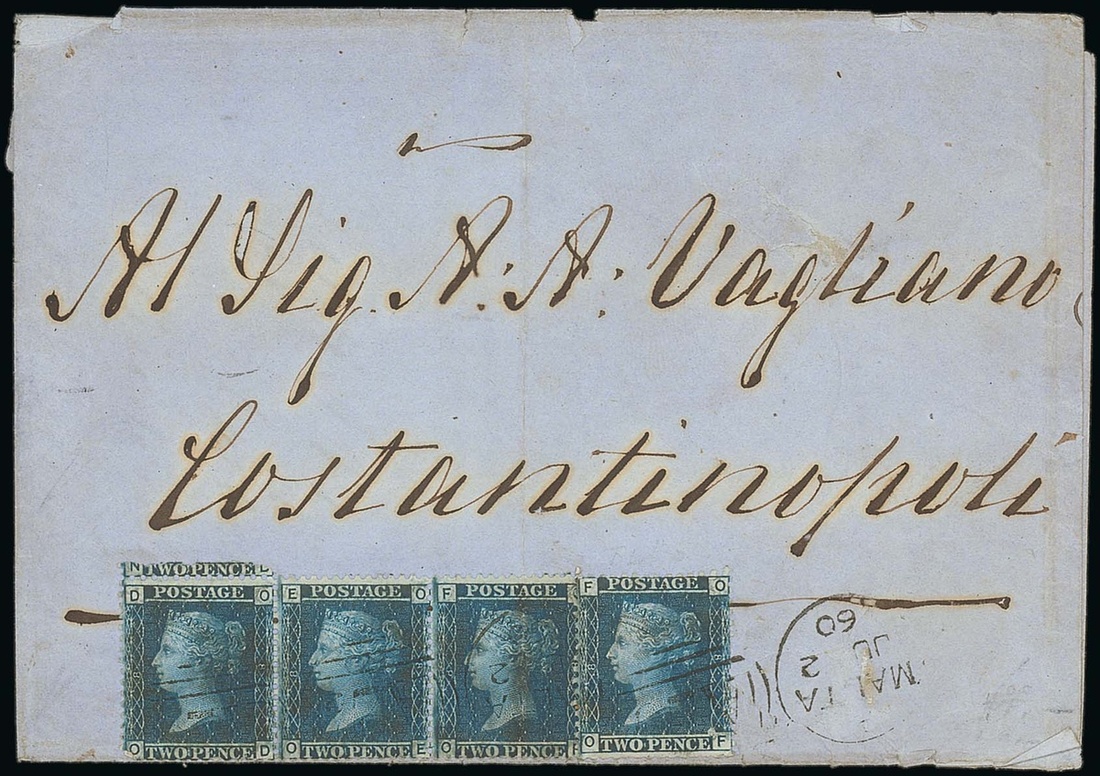 Al Sig. A. A. Vagliano
Costantinopoli
N TWO PENCE D
D POSTAGE O E POSTAGE O F POSTAGE O F POSTAGE O
O TWO PENCE D O TWO PENCE E O TWO PENCE F O TWO PENCE F
MALTA
JU 2
60